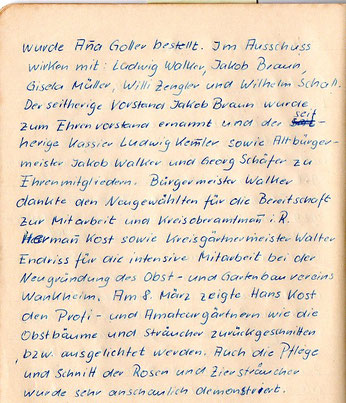 wurde Aña Goller bestellt. Im Ausschuss
wirken mit: Ludwig Walker, Jakob Braun,
Gisela Müller, Willi Zengler und Wilhelm Schall.
Der seitherige Vorstand Jakob Braun wurde
zum Ehrenvorstand ernannt und der seit-
herige Kassier Ludwig Kemler sowie Altbürger-
meister Jakob Walker und Georg Schäfer zu
Ehrenmitgliedern. Bürgermeister Walker
dankte den Neugewählten für die Bereitschaft
zur Mitarbeit und Kreisoberamtmañ i.R.
Hermañ Kost sowie Kreisgärtnermeister Walter
Endriss für die intensive Mitarbeit bei der
Neugründung des Obst- und Gartenbauvereins
Wankheim. Am 8. März zeigte Hans Kost
den Profi- und Amateurgärtnern wie die
Obstbäume und Sträucher zurückgeschnitten
bzw. ausgelichtet werden. Auch die Pflege
und Schnitt der Rosen und Ziersträucher
wurde sehr anschaulich demonstriert.